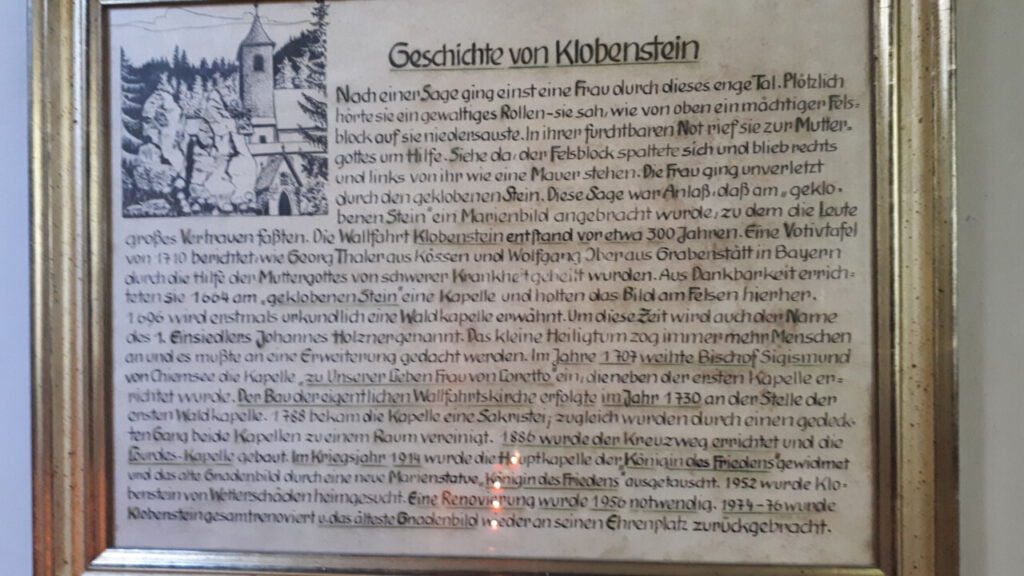 Geschichte von Klobenstein
Nach einer Sage ging einst eine Frau durch dieses enge Tal. Plötzlich
hörte sie ein gewaltiges Rollen - sie sah, wie von oben ein mächtiger Fels=
block auf sie niedersauste. In ihrer furchtbaren Not rief sie zur Mutter=
gottes um Hilfe. Siehe da, der Felsblock spaltete sich und blieb rechts
und links von ihr wie eine Mauer stehen. Die Frau ging unverletzt
durch den geklobenen Stein. Diese Sage war Anlaß, daß am „geklo=
benen Stein" ein Marienbild angebracht wurde, zu dem die Leute
großes Vertrauen faßten. Die Wallfahrt Klobenstein entstand vor etwa 300 Jahren. Eine Votivtafel
von 1710 berichtet, wie Georg Thaler aus Kössen und Wolfgang Iber aus Grabenstätt in Bayern
durch die Hilfe der Muttergottes von schwerer Krankheit geheilt wurden. Aus Dankbarkeit errich=
teten sie 1664 am „geklobenen Stein" eine Kapelle und holten das Bild am Felsen hierher.
1696 wird erstmals urkundlich eine Waldkapelle erwähnt. Um diese Zeit wird auch der Name
des 1. Einsiedlers Johannes Holzner genannt. Das kleine Heiligtum zog immer mehr Menschen
an und es mußte an eine Erweiterung gedacht werden. Im Jahre 1707 weihte Bischof Sigismund
von Chiemsee die Kapelle „zu Unserer Lieben Frau von Loretto" ein, die neben der ersten Kapelle er=
richtet wurde. Der Bau der eigentlichen Wallfahrtskirche erfolgte im Jahr 1730 an der Stelle der
ersten Waldkapelle. 1788 bekam die Kapelle eine Sakristei, zugleich wurden durch einen gedeck=
ten Gang beide Kapellen zu einem Raum vereinigt. 1886 wurde der Kreuzweg errichtet und die
Lourdes-Kapelle gebaut. Im Kriegsjahr 1914 wurde die Hauptkapelle der „Königin des Friedens" gewidmet
und das alte Gnadenbild durch eine neue Marienstatue „Königin des Friedens" ausgetauscht. 1952 wurde Klo=
benstein von Wetterschäden heimgesucht. Eine Renovierung wurde 1956 notwendig. 1974-76 wurde
Klobenstein gesamtrenoviert u. das älteste Gnadenbild wieder an seinen Ehrenplatz zurückgebracht.